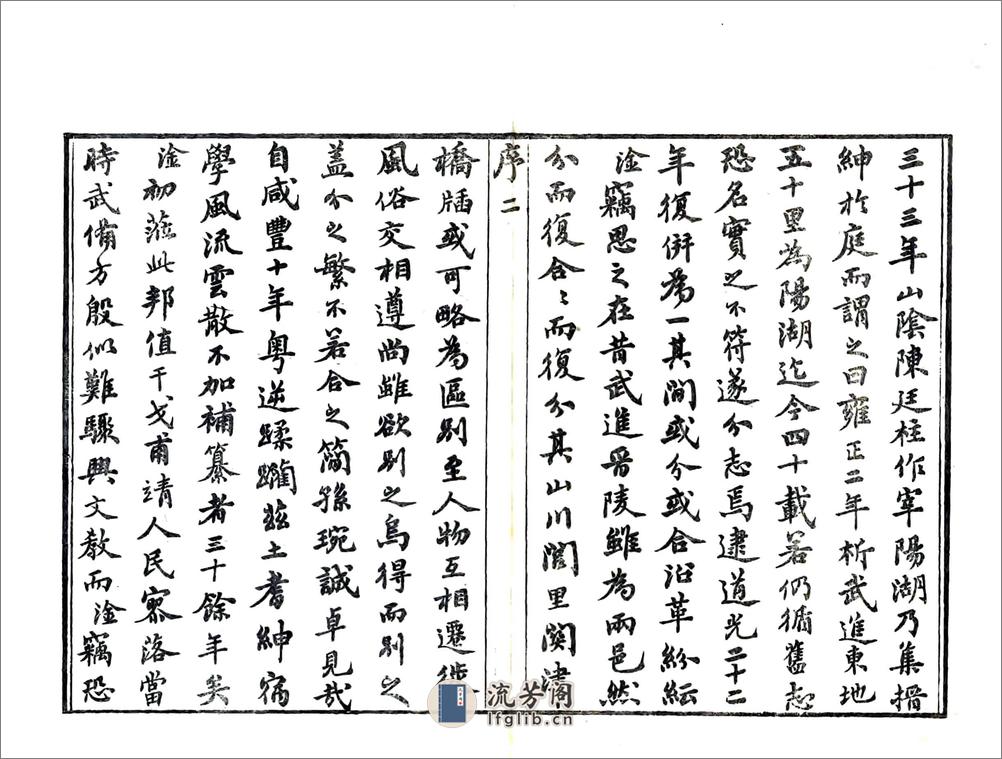 三十三年山陰陳廷柱作宰陽湖乃集搢
紳於庭而謂之曰雍正二年析武進東地
五十里為陽湖迄今四十載若仍循舊志
恐名實之不符遂分志焉逮道光二十二
年復併為一其間或分或合沿革紛紜
淦竊思之在昔武進晉陵雖為兩邑然
分而復合〻而復分其山川閭里關津
序 二
橋牐或可略為區別至人物互相遷徙
風俗交相遵尚雖欲別之烏得而別之
蓋分之繁不若合之簡孫琬誠卓見哉
自咸豐十年粤逆蹂躪茲土耆紳宿
學風流雲散不加補纂者三十餘年矣
淦初蒞此邦值干戈甫靖人民寥落當
時武備方殷似難驟興文教而淦竊恐
流芳阁
lfglib.cn